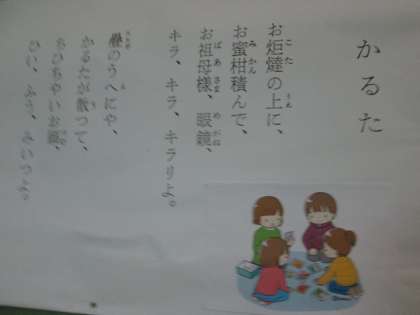 かるた
お炬燵の上に、
お蜜柑積んで、
お祖母様、眼鏡、
キラ、キラ、キラリよ。
畳のうへにや、
かるたが散つて、
ちひちやいお頭、
ひい、ふう、みいつよ。